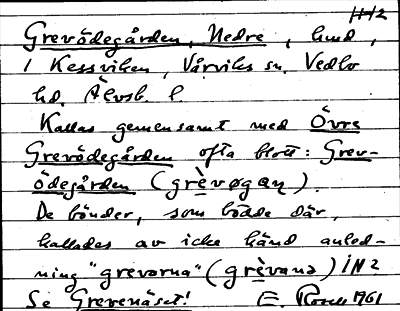 Grevödegården, Nedre, hmd,
1 Kessviken, Vårviks sn. Vedbo
hd. Älvsb. l.
Kallas gemensamt med Övre
Grevödegården ofta blott: Grev-
ödegården (grèvøgaɳ).
De bönder, som bodde där,
kallades av icke känd anled-
ning "grevarna" (grèvana) IN2
Se Grevenäset! E. 1961